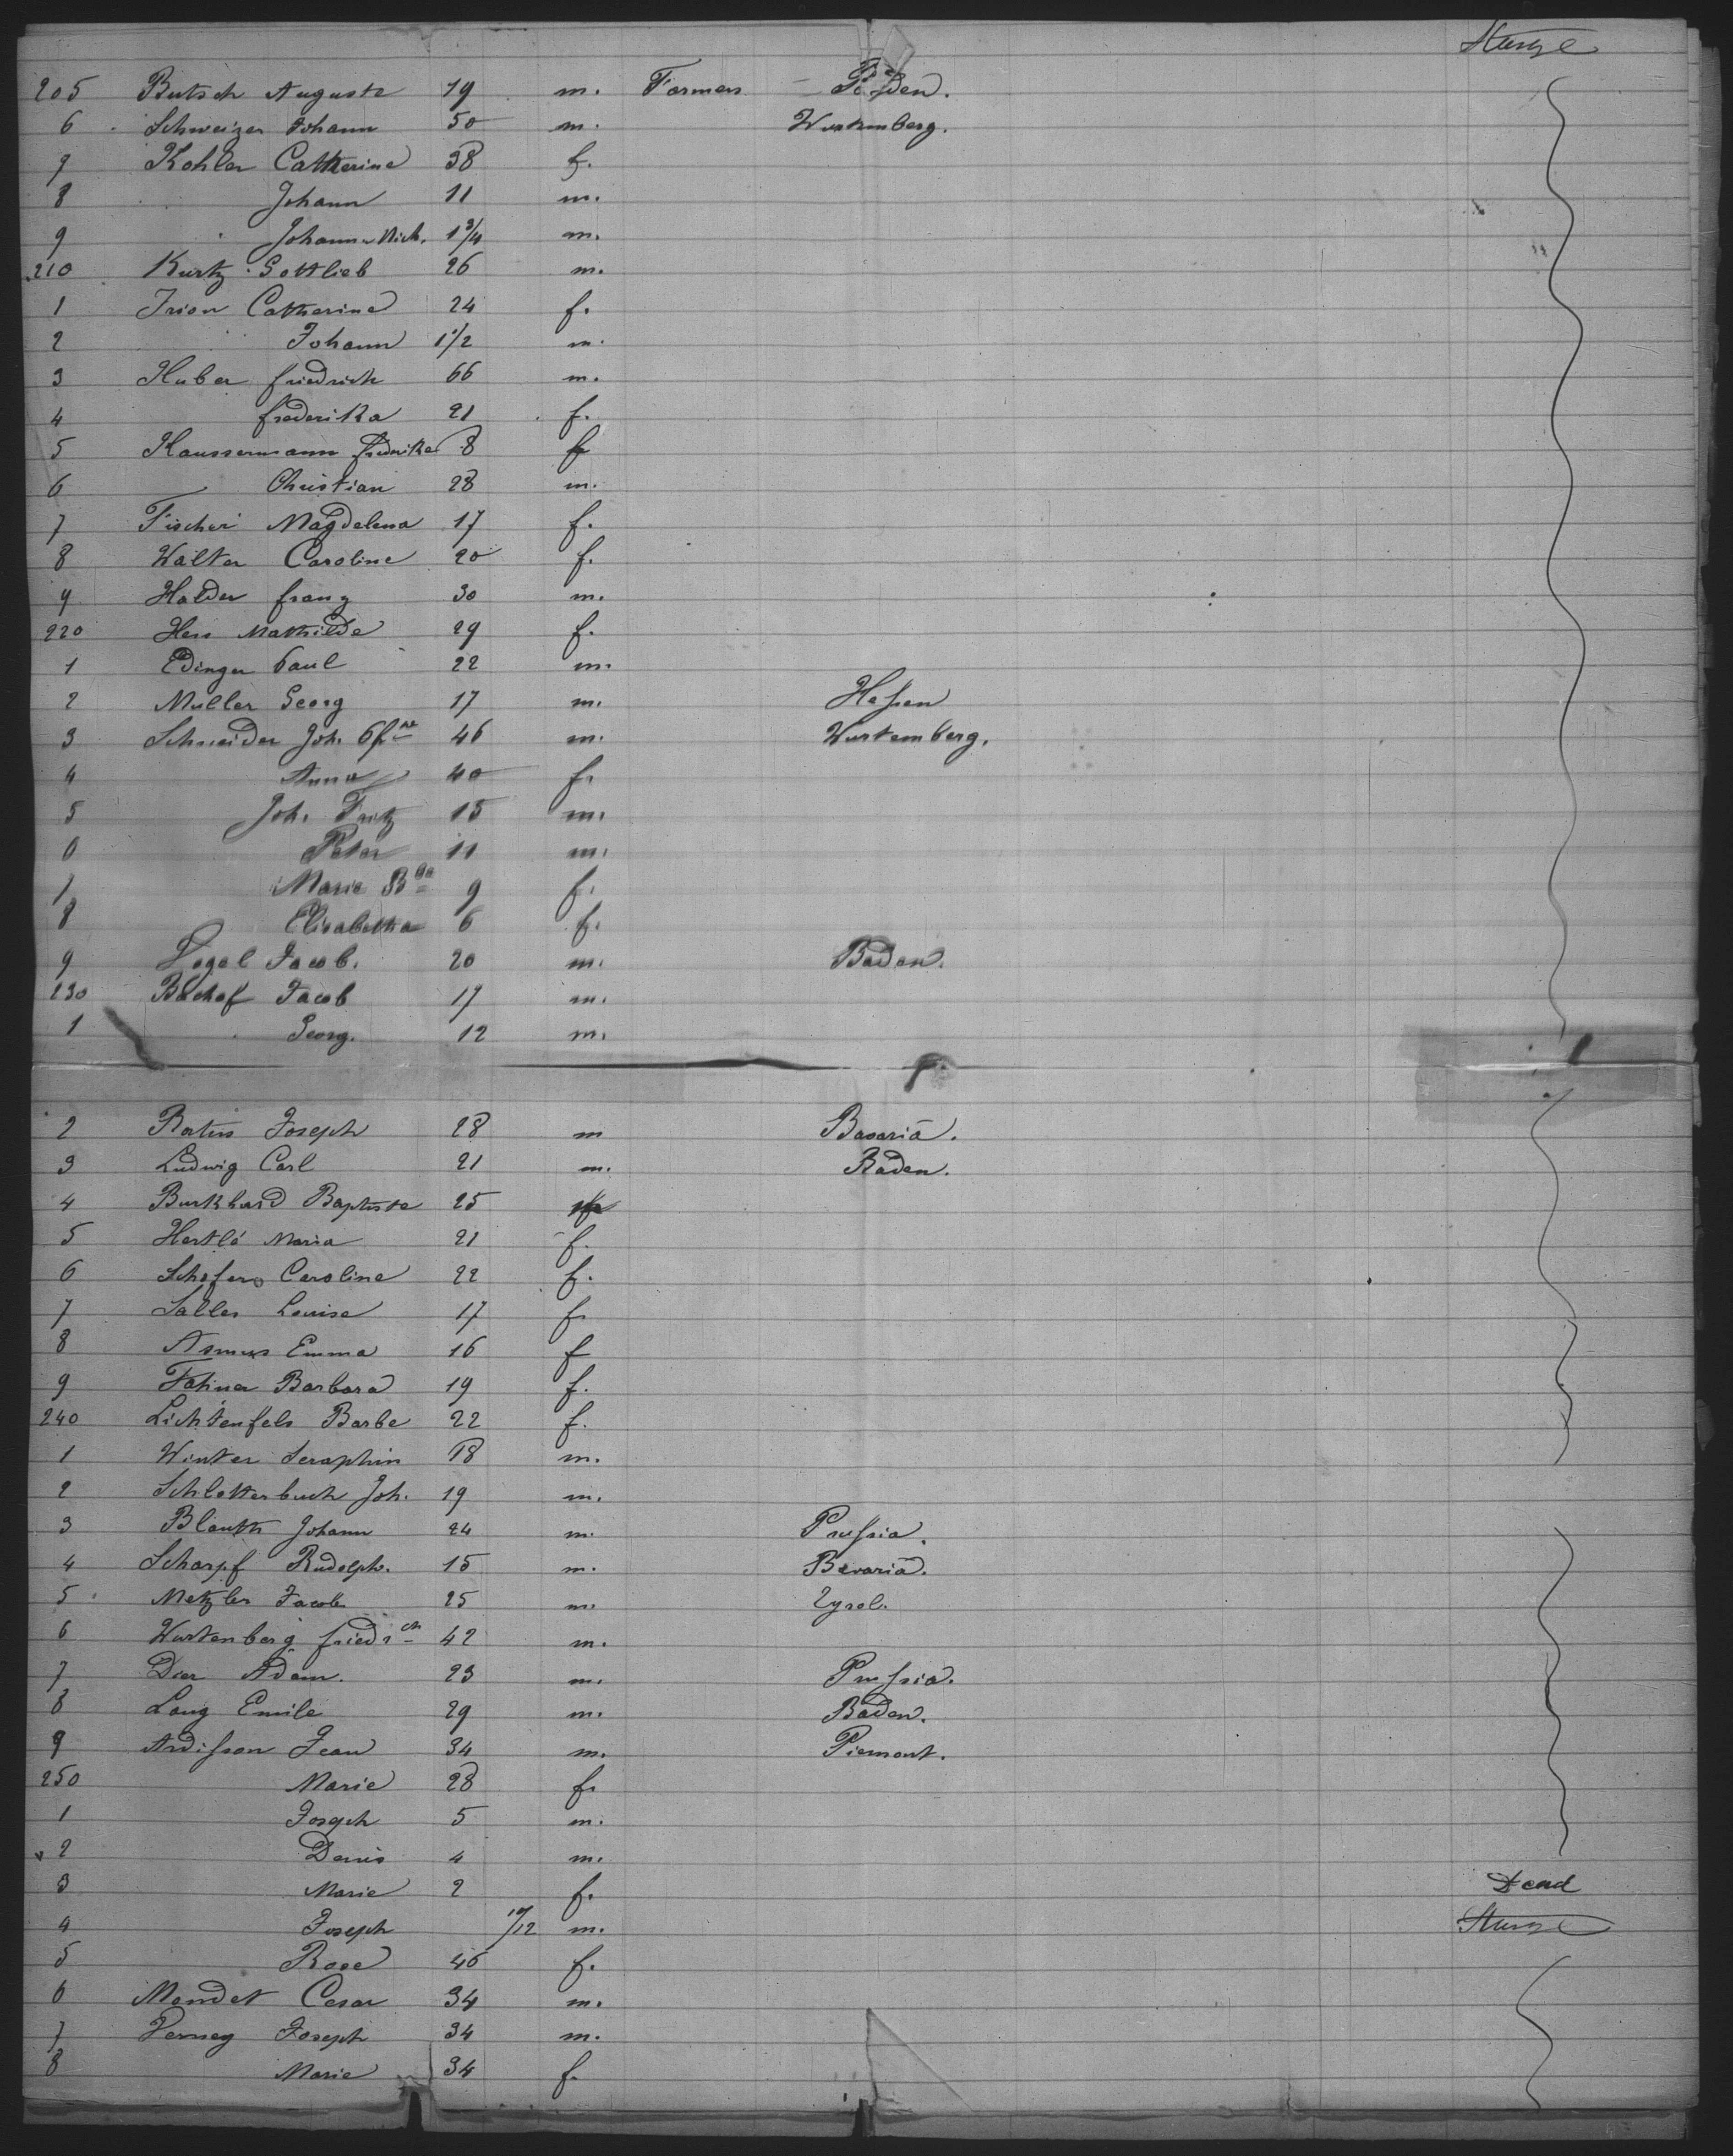 Steerage
205 Butsch Auguste 19 m. Farmers Baden.
6 Schweizer Johann 50 m. Wurtemberg.
7 Kohler Catherine 38 f.
8 Johann 11 m.
9 Johann Nich. 1 3/4 m.
210 Kurtz Gottlieb 26 m.
1 Irion Catherine 24 f.
2 Johann 1 1/2 m.
3 Huber friedrich 66 m.
4 frederika 21 f.
5 Haussermann fredrika 8 f
6 Christian 28 m.
7 Fischer Magdelena 17 f.
8 Walter Caroline 20 f.
9 Halder franz 30 m.
220 Hess Mathilde 29 f.
1 Edinger Paul 22 m.
2 Muller Georg 17 m. Hessen
3 Schneider Joh. 46 m. Wurtemberg.
4 Anna 40 f.
5 Joh. Fritz 15 m.
6 Peter 11 m.
7 Marie Bra 9 f.
8 Elisabetha 6 f.
9 Vogel Jacob. 20 m. Baden.
230 Bischof Jacob 17 m.
1 Georg. 12 m.
2 Joseph 28 m Bavaria.
3 Ludwig Carl 21 m. Baden.
4 Burkhard Baptiste 25
5 Hertlé Maria 21 f.
6 Schafer Caroline 22 f.
7 Saller Louise 17 f.
8 Asmus Emma 16 f
9 Barbara 19 f.
240 Lichtenfels Barbe 22 f.
1 Winter Seraphin 18 m.
2 Schlotterbuch Joh. 19 m.
3 Blauth Johann 24 m. Prussia.
4 Scharpf Rudolph. 15 m. Bavaria.
5 Metzler Jacob 25 m. Tyrol.
6 Wurtenberg friedrch 42 m.
7 Dier Adam. 23 m. Prussia.
8 Lang Emile 29 m. Baden.
9 Ardisson Jean 34 m. Piemont.
250 Marie 28 f.
1 Joseph 5 m.
2 Denis 4 m.
3 Marie 2 f. Dead
4 Joseph 10/12 m. Steerage
5 Rose 46 f.
6 Mondet Cesar 34 m.
7 Verney Joseph 34 m.
8 Marie 34 f.